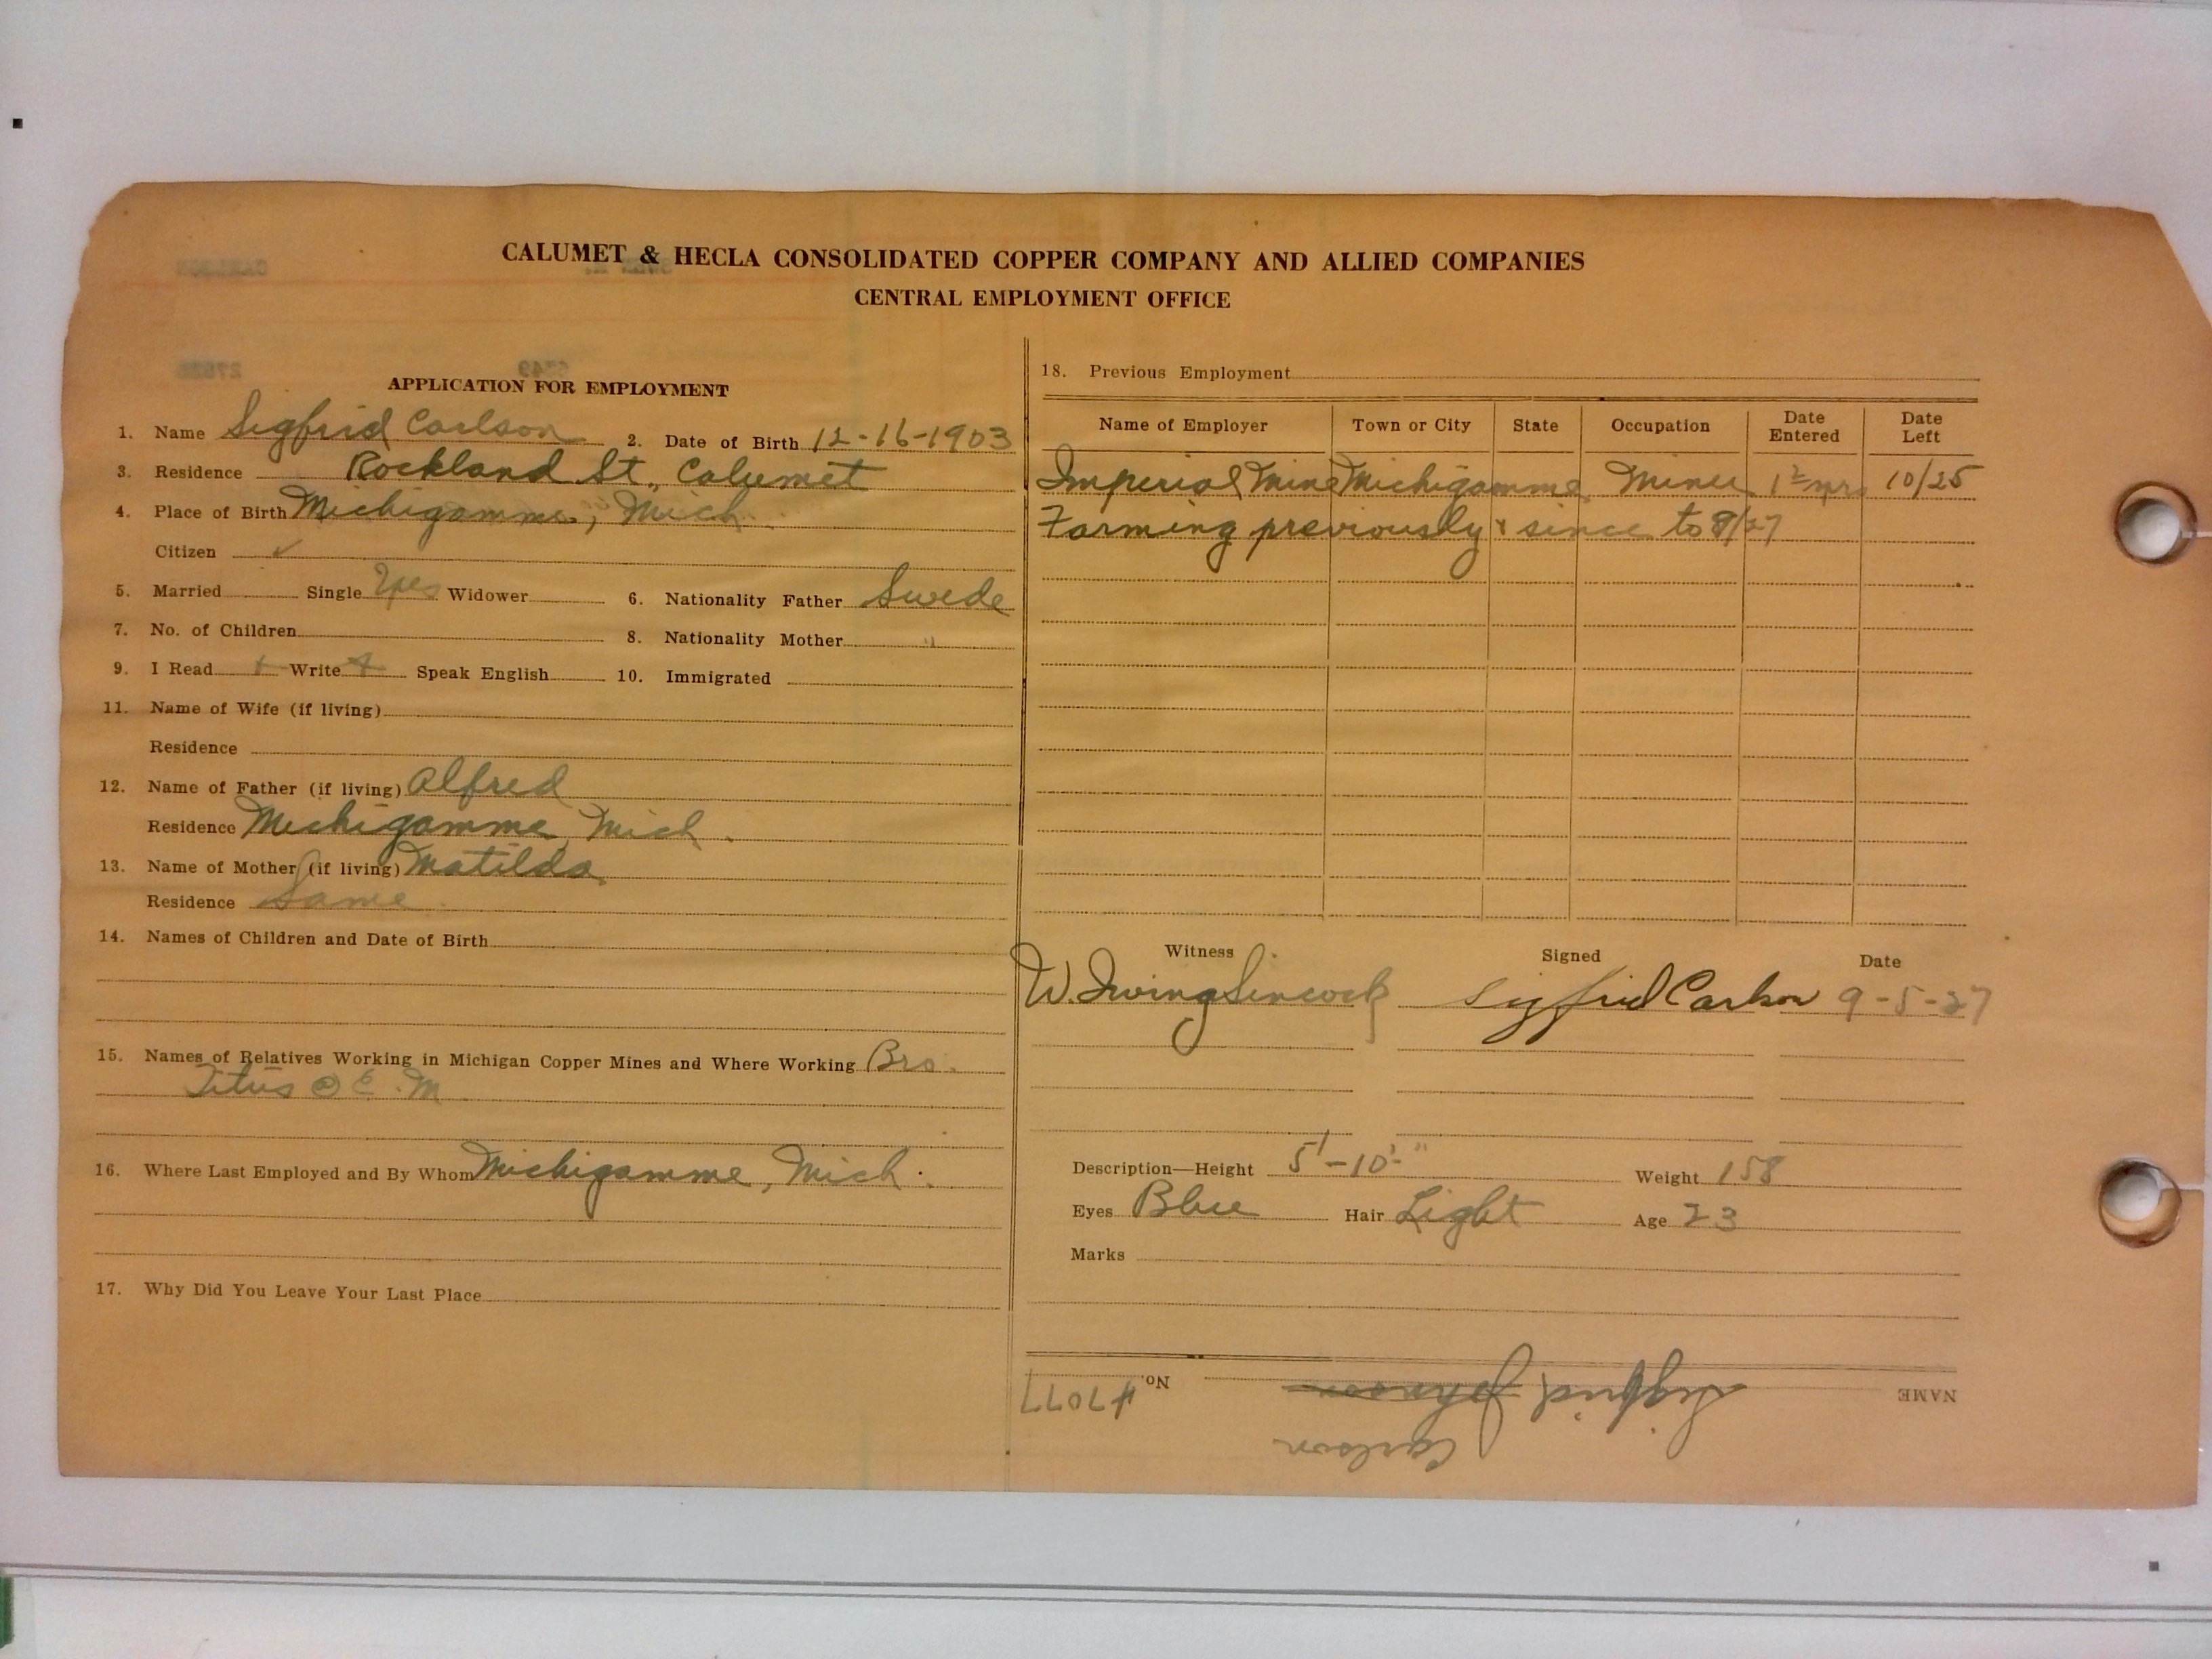 CALUMET & HECLA CONSOLIDATED COPPER COMPANY AND ALLIED COMPANIES
CENTRAL EMPLOYMENT OFFICE
APPLICATION FOR EMPLOYMENT
1. Name Sigfrid Carlson 2. Date of Birth 12-16-1903
3. Residence Rockland St., Calumet
4. Place of Birth Michigamme, Mich.
Citizen ✓
5. Married Single Yes Widower 6. Nationality Father Swede
7. No. of Children 8. Nationality Mother "
9. I Read + Write + Speak English 10. Immigrated
11. Name of Wife (if living)
Residence
12. Name of Father (if living) Alfred
Residence Michigamme Mich.
13. Name of Mother (if living) Matilda
Residence Same
14. Names of Children and Date of Birth
15. Names of Relatives Working in Michigan Copper Mines and Where Working Bro.
Titus @ E. M.
16. Where Last Employed and By Whom Michigamme, Mich.
17. Why Did You Leave Your Last Place
18. Previous Employment
Name of Employer Town or City State Occupation Date Entered Date Left
Imperial Mine Michigamme Miner 10/25
Farming previously & since to 8/27
Witness Signed Date
W. Irving Sincock Sigfrid Carlson 9-5-27
Description—Height 5'-10" Weight 158
Eyes Blue Hair Light Age 23
Marks
NAME Sigfrid No. 47077
Carlson